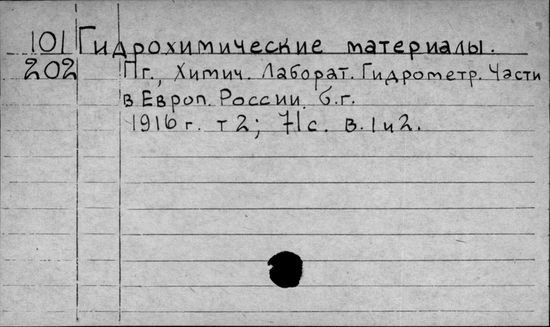 101 Гидрохимические материалы.
202 Пг., Химич. Лаборат. Гидрометр. Части
в Европ. России. б.г.
1916 г. т 2; 71с. в. 1 и 2.